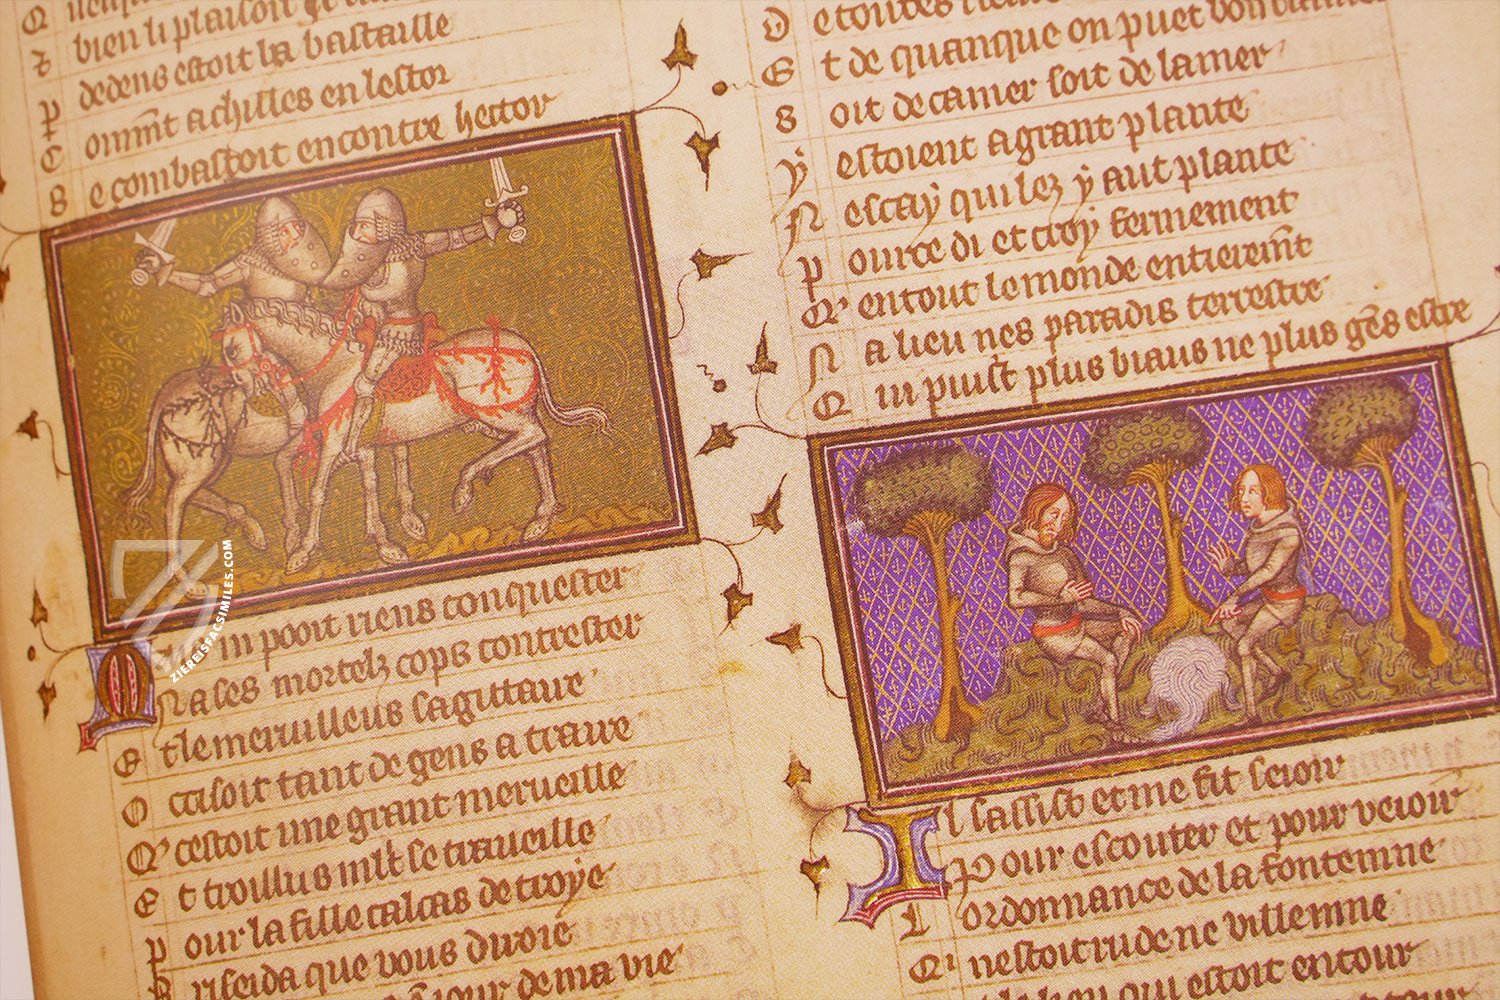 bien li plaisoit
dedens estoit la bataille
P
C ommt achilles en lestor
S e combatoit encontre hector
in pooit riens conquester
N a les mortelz cops contrester
E t le merveilleus sagittaire
O ccisoit tant de gens a traire
Q' cestoit une grant merveille
E t troillus mlt se traveille
P our la fille calcas de troye
B riseida que vous diroie
jour de ma vie
D e toutes
E t de quanque on puet
S oit de camer soit de lamer
Y estoient a grant plante
N e scay qui lez y aut plante
P our ce di et croy fermement
Q' en tout le monde entieremt
N a lieu nes paradis terrestre
Q ui puist plus biaus ne plus gens estre
I l sassist et me fit seoir
P our escouter et pour veoir
L ordonnance de la fontenne
Q' nestoit rude ne villenne
qui estoit entour
ZIEREISFACSIMILES.COM